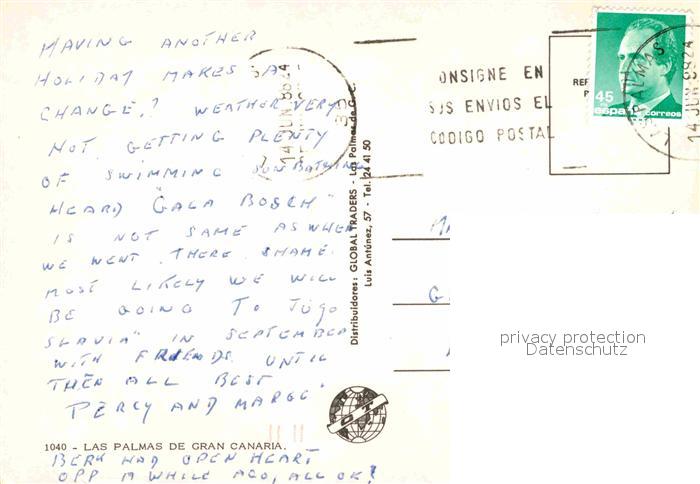 MAVING ANOTHER
HOLIDAY MAKES A
CHANGE,? WEATHER VERY
HOT GETTING PLENTY
OF SWIMMING SUNBATHING
HEARD "GALA BOSCH"
IS NOT SAME AS WHEN
WE WENT THERE, SHAME.
MOST LIKELY WE WILL
BE GOING TO JUGO
SLAVIA" IN SEPTEMBER
WITH FRIENDS UNTIL
THEN ALL BEST
PERCY AND MARGE.
1040 - LAS PALMAS DE GRAN CANARIA.
BERK HAD OPEN HEART
OPP A WHILE AGO, ALL OK!
Distribuidores: GLOBAL TRADERS - Las Palmas de G.C.
Luis Antúnez, 57 - Tel. 24 41 50
14 JUN 88 24
CONSIGNE EN
SUS ENVIOS EL
CODIGO POSTAL
REF
45
españa correos
LAS PALMAS
14 JUN 88 24
G
privacy protection
Datenschutz